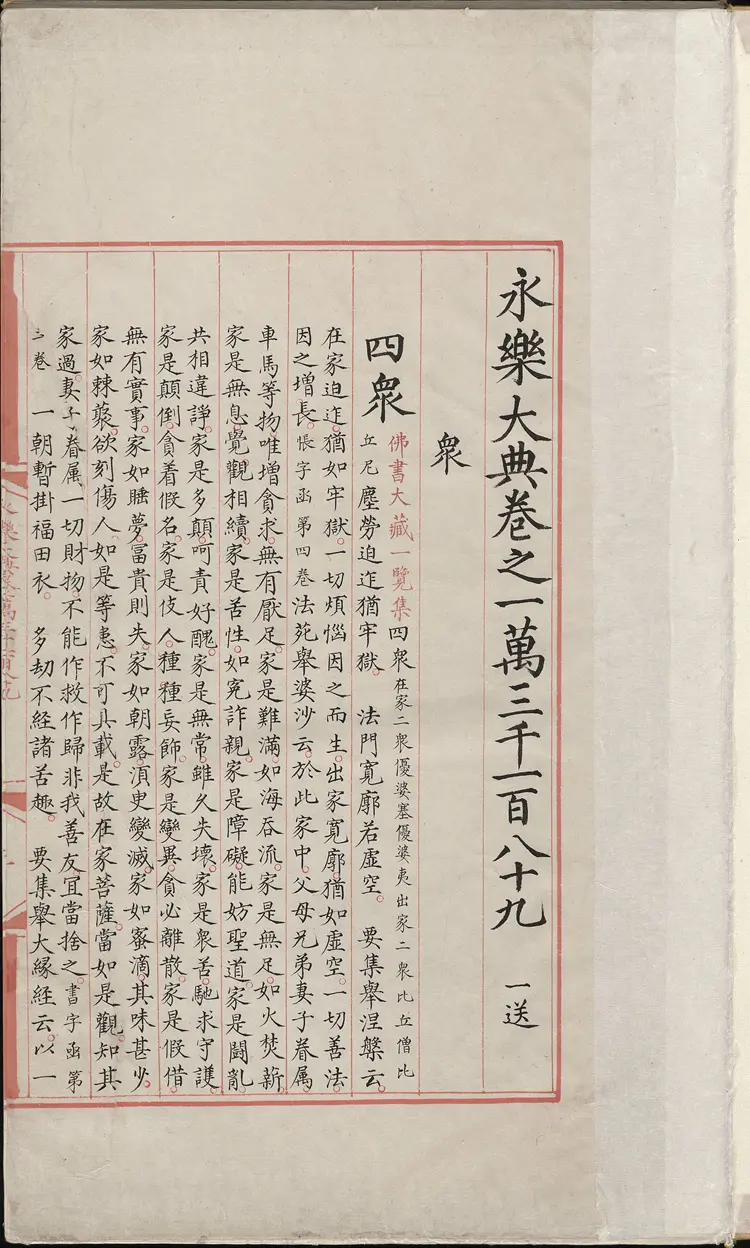 永樂大典卷之一萬三千一百八十九 一送
衆
四衆
佛書大藏一覽集四衆在家二衆優婆塞優婆夷出家二衆比丘僧比
丘尼塵勞迫迮猶牢獄 法門寬廓若虛空 要集舉涅槃云
在家迫迮猶如牢獄一切煩惱因之而生出家寬廓猶如虛空一切善法
因之增長悵字函第四卷法苑舉婆沙云於此家中父母兄弟妻子眷屬
車馬等物唯增貪求無有厭足家是難滿如海吞流家是無足如火焚薪
家是無息覺觀相續家是苦性如冤詐親家是障礙能妨聖道家是鬪亂
共相違諍家是多顛呵責好醜家是無常雖久失壞家是衆苦馳求守護
家是顛倒貪着假名家是伎人種種妄飾家是變異貪必離散家是假借
無有實事家如睡夢冨貴則失家如朝露湏臾變滅家如蜜滴其味甚少
家如棘藂欲刻傷人如是等患不可具載是故在家菩薩當如是觀知其
家過妻子眷属一切財物不能作救作歸非我善友宜當捨之書字函第
三卷 一朝暫掛福田衣 多劫不經諸苦趣 要集舉大縁經云以一